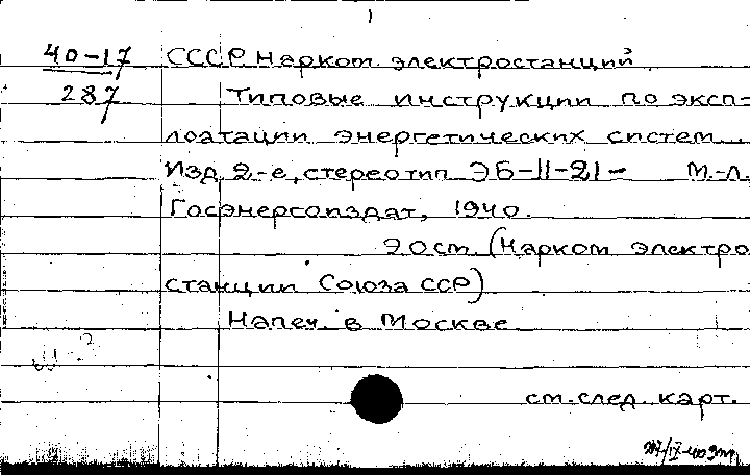 1
40-17 СССР. Наркот. электростанций.
287 Типовые инструкции по эксп-
лоатации энергетических систем...
Изд. 2-е, стереотип. ЭБ-II-21- М.-Л.
Госэнергоиздат, 1940.
Эост. (Наркот электро
станции Союза ССР)
Напеч. в Москве
см. след. карт.